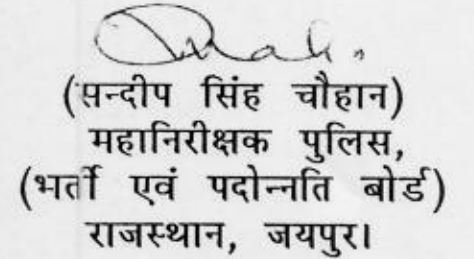 (सन्दीप सिंह चौहान)
महानिरीक्षक पुलिस,
(भर्ती एवं पदोन्नति बोर्ड)
राजस्थान, जयपुर।